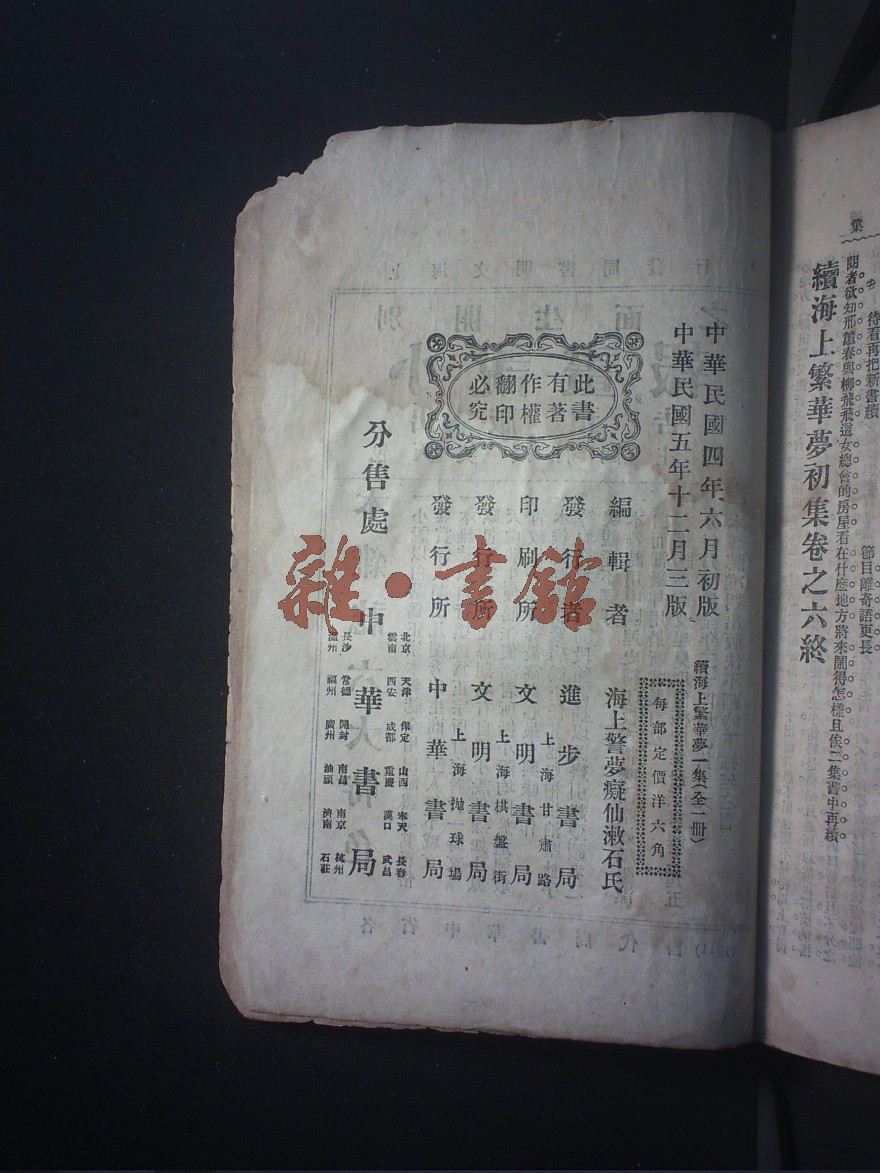 葉
待看再把新書續
節目離奇語更長
閱者欲知邢蕙春與柳飛飛這女總會的房屋看在什麼地方將來鬧得怎樣且俟二集書中再續
續海上繁華夢初集卷之六終
中華民國四年六月初版
中華民國五年十二月三版
續海上繁華夢一集(全一冊)
每部定價洋六角
此書
有著
作權
翻印
必究
編輯者 海上警夢癡仙漱石氏
發行者 進步書局
上海甘肅路
印刷所 文明書局
上海棋盤街
發行所 文明書局
上海拋球場
發行所 中華書局
分售處 中華書局
北京 天津 保定 山西 奉天 長春
雲南 西安 成都 重慶 漢口 武昌
長沙 常德 開封 南昌 南京 杭州
溫州 福州 廣州 汕頭 濟南 石莊
雜·書館